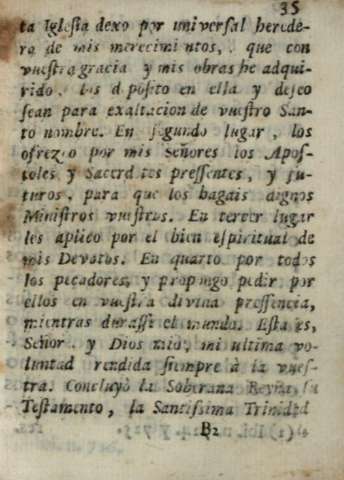 35
ta Iglesia dexo por universal herede-
ro de mis merecimientos, que con
vuestra gracia y mis obras he adqui-
rido, los deposito en ella y deseo
sean para exaltacion de vuestro San-
to nombre. En segundo lugar, los
ofrezco por mis Señores los Apos-
toles, y Sacerdotes pressentes, y fu-
turos, para que los hagais dignos
Ministros vuestros. En tercer lugar
les aplico por el bien espiritual de
mis Devotos. En quarto por todos
los pecadores, y propongo pedir por
ellos en vuestra divina pressencia,
mientras durasse el mundo. Esta es,
Señor, y Dios mio, mi ultima vo-
luntad rendida siempre à la vues-
tra. Concluyò la Soberana Reyna su
Testamento, la Santissima Trinidad
B2
(1) Ibi. n.